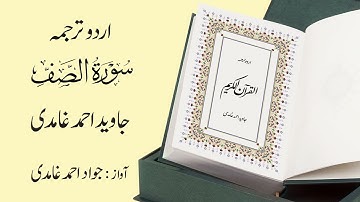 اردو ترجمہ
سورۃ الصف
جاوید احمد غامدی
آواز : جواد احمد غامدی
اردو ترجمہ
القرآن الکریم
جاوید احمد غامدی